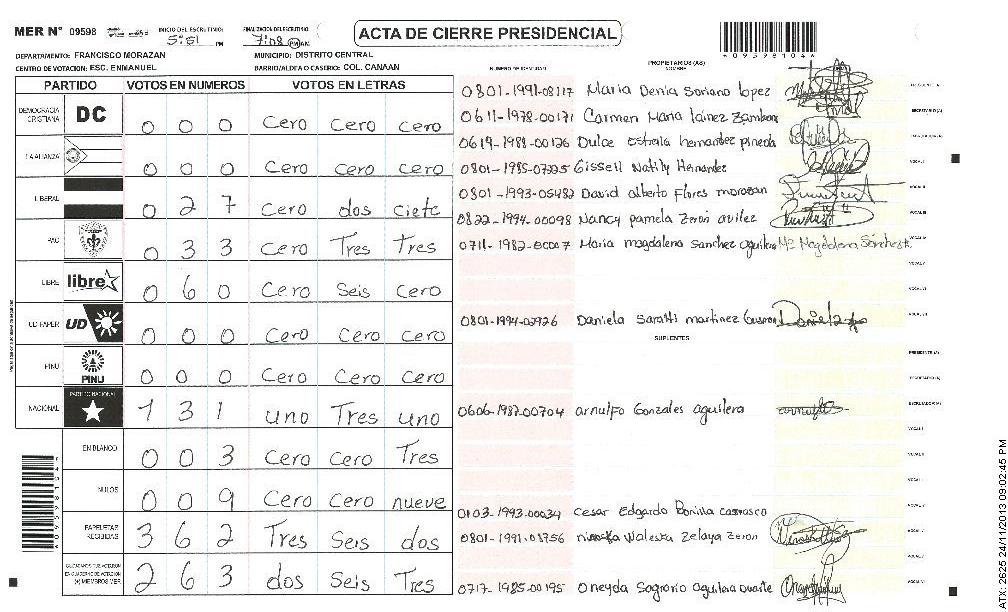 MER N° 09598 INICIO DEL ESCRUTINIO: 5:51 PM FINALIZACION DEL ESCRUTINIO 7:08 PM AM
ACTA DE CIERRE PRESIDENCIAL
*09598104*
DEPARTAMENTO: FRANCISCO MORAZAN MUNICIPIO: DISTRITO CENTRAL
CENTRO DE VOTACION: ESC. ENMANUEL BARRIO/ALDEA O CASERIO: COL. CANAAN
NUMERO DE IDENTIDAD PROPIETARIOS (AS) NOMBRE
PARTIDO VOTOS EN NUMEROS VOTOS EN LETRAS
DEMOCRACIA CRISTIANA DC 0 0 0 Cero Cero Cero
LA ALIANZA 0 0 0 Cero Cero Cero
LIBERAL 0 2 7 Cero dos ciete
PAC 0 3 3 Cero Tres Tres
LIBRE libre 0 6 0 Cero Seis Cero
UD-FAPER UD 0 0 0 Cero Cero Cero
PINU PINU 0 0 0 Cero Cero Cero
NACIONAL PARTIDO NACIONAL 1 3 1 uno Tres uno
EN BLANCO 0 0 3 Cero Cero Tres
NULOS 0 0 9 Cero Cero nueve
PAPELETAS RECIBIDAS 3 6 2 Tres Seis dos
CIUDADANOS QUE VOTARON EN CUADERNO DE VOTACION (+) MIEMBROS MER 2 6 3 dos Seis Tres
0801-1991-08117 Maria Denia Soriano lopez
0611-1978-00171 Carmen Maria lainez Zambrano
0619-1988-00126 Dulce Estrella hernandez pineda
0801-1985-07225 Gissell Natily Hernandez
0801-1993-05482 David alberto Flores morazan
0822-1994-00098 Nancy pamela Zeron avilez
0711-1982-00007 Maria magdalena Sanchez aguilera Mª Magdalena Sánchez A.
0801-1994-02926 Daniela Saratti martinez Guzman
SUPLENTES
0606-1987-00704 arnulfo Gonzales aguilera
0103-1993-00034 Cesar Edgardo Bonilla carrasco
0801-1991-03756 Waleska Zelaya Zeron
0717-1985-00195 Oneyda Sagrario Aguilera Duarte
ATX-2S25 24/11/2013 09:02:45 PM